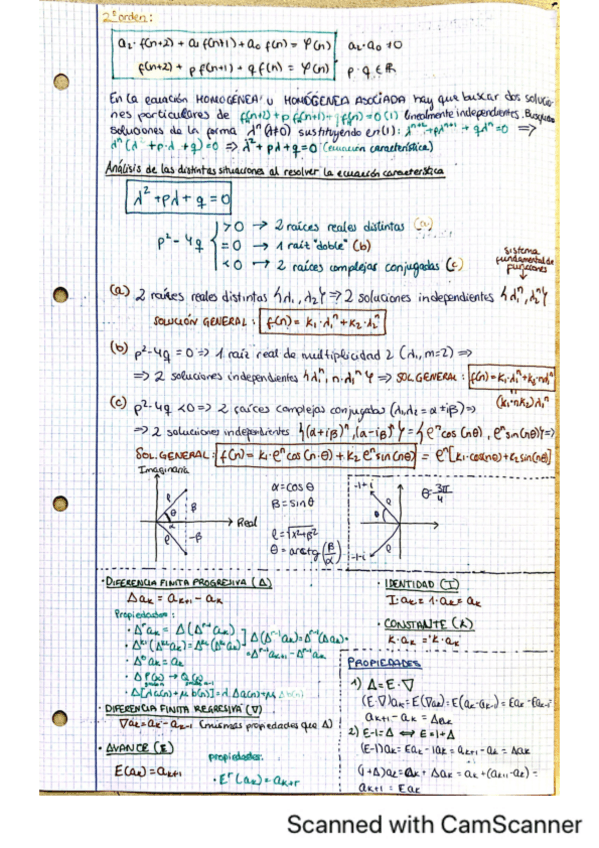 2º orden:
a₂·f(n+2) + a₁f(n+1) + a₀f(n) = φ(n) a₂·a₀ ≠ 0
f(n+2) + p f(n+1) + q f(n) = φ(n) p·q ∈ ℝ
En la ecuación HOMOGÉNEA u HOMOGÉNEA ASOCIADA hay que buscar dos solucio-
nes particulares de f(n+2)+p f(n+1)+q f(n)=0 (1) linealmente independientes. Busquemos
soluciones de la forma λⁿ (λ≠0) sustituyendo en (1): λⁿ⁺²+pλⁿ⁺¹+qλⁿ=0 ⇒
λⁿ(λ²+p·λ+q)=0 ⇒ λ²+pλ+q=0 (ecuación característica)
Análisis de las distintas situaciones al resolver la ecuación característica
λ²+pλ+q=0
p²-4q { >0 → 2 raíces reales distintas (a)
=0 → 1 raíz "doble" (b)
<0 → 2 raíces complejas conjugadas (c)
sistema
fundamental de
funciones
(a) 2 raíces reales distintas {λ₁,λ₂} ⇒ 2 soluciones independientes {λ₁ⁿ,λ₂ⁿ}
SOLUCIÓN GENERAL: f(n)=K₁·λ₁ⁿ+K₂·λ₂ⁿ
(b) p²-4q=0 ⇒ 1 raíz real de multiplicidad 2 (λ₁,m=2) ⇒
⇒ 2 soluciones independientes {λ₁ⁿ,n·λ₁ⁿ} ⇒ SOL.GENERAL: f(n)=K₁·λ₁ⁿ+K₂·nλ₁ⁿ
(K₁+nK₂)λ₁ⁿ
(c) p²-4q<0 ⇒ 2 raíces complejas conjugadas (λ₁,λ₂=α±iβ) ⇒
⇒ 2 soluciones independientes {(α+iβ)ⁿ,(α-iβ)ⁿ} = {ρⁿcos(nθ), ρⁿsin(nθ)} ⇒
SOL.GENERAL: f(n)=K₁·ρⁿcos(n·θ)+K₂ρⁿsin(nθ) = ρⁿ[K₁·cos(nθ)+K₂sin(nθ)]
Imaginaria
Real
ρ
θ
α
β
-β
ρ
α=cosθ
β=sinθ
ρ=√α²+β²
θ=arctg(β/α)
-1+i
-1-i
θ
ρ
θ=3π/4
· DIFERENCIA FINITA PROGRESIVA (Δ)
Δaₖ = aₖ₊₁ - aₖ
Propiedades:
· Δʳaₖ = Δ(Δʳ⁻¹aₖ)
· Δ⁰aₖ=aₖ
· Δ[λa(n)+μb(n)]=λΔa(n)+μΔb(n)
· DIFERENCIA FINITA REGRESIVA (∇)
∇aₖ=aₖ-aₖ₋₁ (mismas propiedades que Δ)
· AVANCE (E)
E(aₖ)=aₖ₊₁
propiedades:
· Eʳ(aₖ)=aₖ₊ᵣ
· IDENTIDAD (I)
I·aₖ=1·aₖ=aₖ
· CONSTANTE (K)
K·aₖ='K·aₖ'
PROPIEDADES
1) Δ=E·∇
(E·∇)aₖ=E(∇aₖ)=E(aₖ-aₖ₋₁)=Eaₖ-Eaₖ₋₁=
aₖ₊₁-aₖ=Δaₖ
2) E-1=Δ ⟺ E=1+Δ
(E-1)aₖ=Eaₖ-1aₖ=aₖ₊₁-aₖ=Δaₖ
(1+Δ)aₖ=aₖ+Δaₖ=aₖ+(aₖ₊₁-aₖ)=
aₖ₊₁=Eaₖ
Scanned with CamScanner